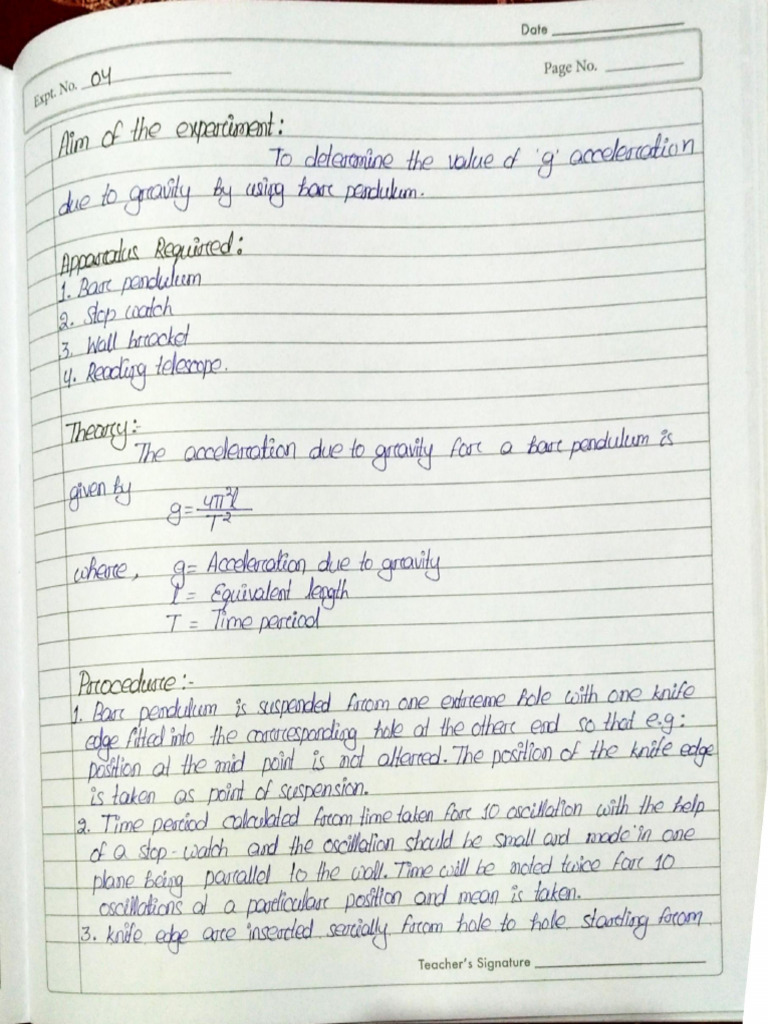 Date
Expt. No. 04
Page No.
Aim of the experiment:
To determine the value of 'g' acceleration
due to gravity by using bar pendulum.
Apparatus Required:
1. Bar pendulum
2. Stop watch
3. Wall bracket
4. Reading telescope.
Theory:-
The acceleration due to gravity for a bar pendulum is
given by
g = 4π²l / T²
where, g = Acceleration due to gravity
l = Equivalent length
T = Time period
Procedure:-
1. Bar pendulum is suspended from one extreme hole with one knife
edge fitted into the corresponding hole at the other end so that e.g:
position at the mid point is not altered. The position of the knife edge
is taken as point of suspension.
2. Time period calculated from time taken for 10 oscillation with the help
of a stop-watch and the oscillation should be small and made in one
plane being parallel to the wall. Time will be noted twice for 10
oscillations at a particular position and mean is taken.
3. knife edge are inserted serially from hole to hole starting from
Teacher's Signature